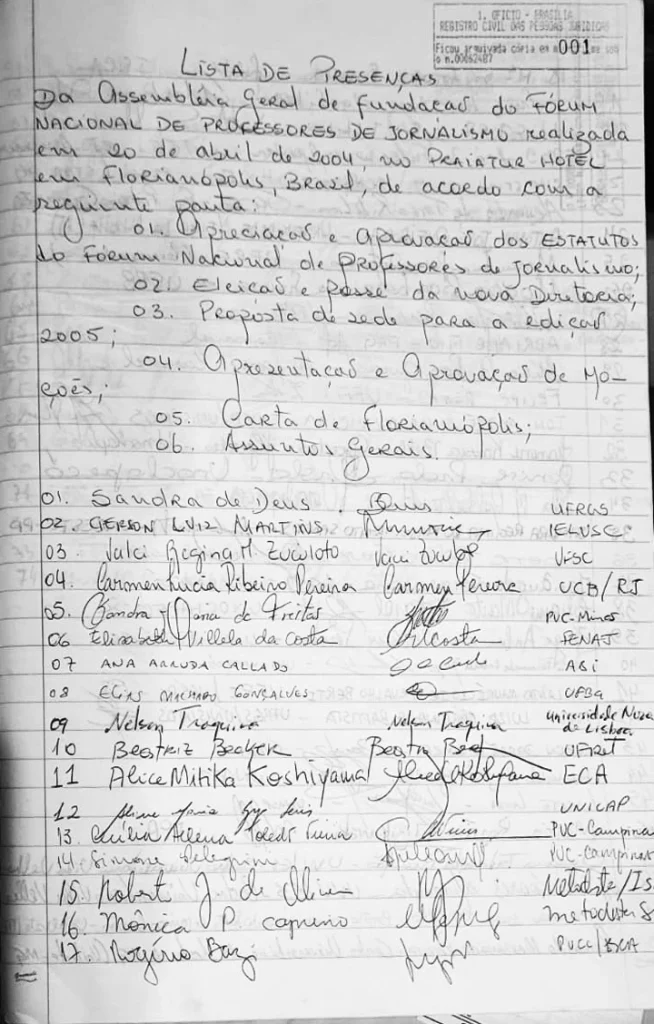 1. OFICIO - BRASILIA
REGISTRO CIVIL DAS PESSOAS JURIDICAS
Ficou arquivada cópia em
o n.00062487
001
LISTA DE PRESENÇAS
Da Assembléia Geral de fundação do FÓRUM
NACIONAL DE PROFESSORES DE JORNALISMO realizada
em 20 de abril de 2004, no PRAIATUR HOTEL
em Florianópolis, Brasil, de acordo com a
seguinte pauta:
01. Apreciação e aprovação dos ESTATUTOS
do Fórum Nacional de PROFESSORES de Jornalismo;
02. Eleição e posse da nova Diretoria;
03. Proposta de sede para a edição
2005;
04. Apresentação e Aprovação de Mo-
ções;
05. Carta de Florianópolis;
06. Assuntos Gerais.
01. Sandra de Deus . Deus UFRGS
02. GERSON LUIZ MARTINS IELUSC
03. Valci Regina M Zuculoto Valci Zuculoto UFSC
04. Carmen Lucia Ribeiro Pereira Carmen Pereira UCB/RJ
05. Sandra Maria de Freitas PUC-Minas
06 Elisabeth Villela da Costa EVCosta FENAJ
07 ANA ARRUDA CALLADO ABI
08 ELIAS MACHADO GONÇALVES UFBA
09 Nelson Traquina Nelson Traquina Universidade Nova de Lisboa
10 Beatriz Becker Beatriz UFRJ
11 Alice Mitika Koshiyama Alice Koshiyama ECA
12 Maria UNICAP
13. Cecília Helena Toledo PUC-Campinas
14. Simone PUC-Campinas
15. Robert J. de Metodista
16. Mônica P. Caprino metodista
17. Rogério Bazi PUCC